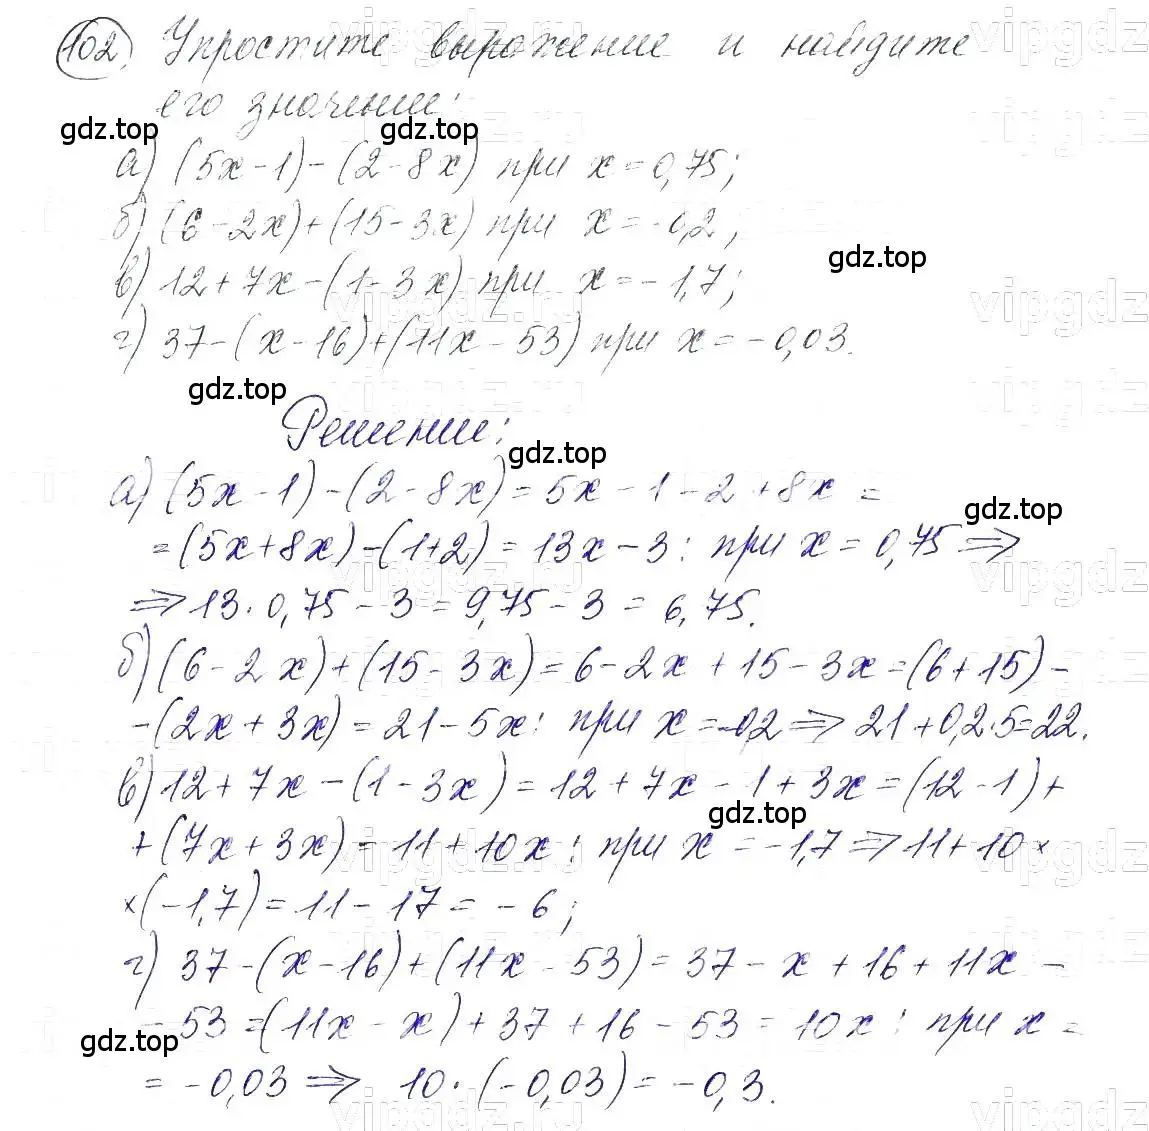 102) Упростите выражение и найдите
его значение:
gdz.top gdz.top
а) (5x-1)-(2-8x) при x=0,75;
б) (6-2x)+(15-3x) при x=-0,2;
gdz.top
в) 12+7x-(1-3x) при x=-1,7;
г) 37-(x-16)+(11x-53) при x=-0,03.
gdz.top
Решение:
gdz.top
а) (5x-1)-(2-8x)=5x-1-2+8x=
gdz.top
=(5x+8x)-(1+2)=13x-3: при x=0,75⇒
⇒13·0,75-3=9,75-3=6,75.
б) (6-2x)+(15-3x)=6-2x+15-3x=(6+15)-
-(2x+3x)=21-5x: при x=-0,2⇒21+0,2·5=22.
в) 12+7x-(1-3x)=12+7x-1+3x=(12-1)+
gdz.top
+(7x+3x)=11+10x: при x=-1,7⇒11+10×
×(-1,7)=11-17=-6;
г) 37-(x-16)+(11x-53)=37-x+16+11x-
-53=(11x-x)+37+16-53=10x: при x=
gdz.top
=-0,03⇒ 10·(-0,03)=-0,3.
vipgdz.ru